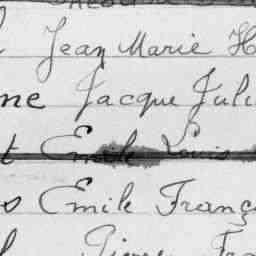 Jean Marie H
ne Jacque Juli
t Emile Louis
s Emile Franç
l Pierre Fra